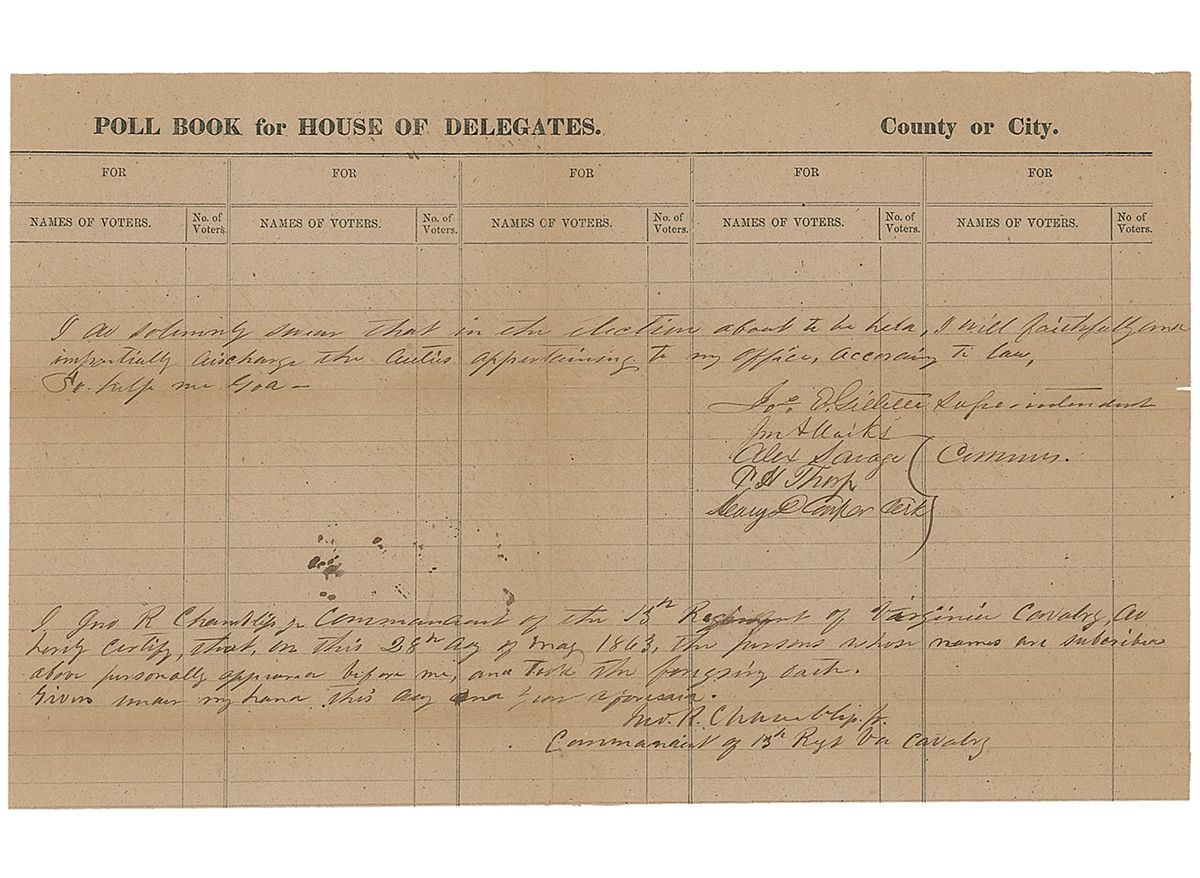 POLL BOOK for HOUSE OF DELEGATES. County or City.
FOR FOR FOR FOR FOR
NAMES OF VOTERS. No. of Voters. NAMES OF VOTERS. No. of Voters. NAMES OF VOTERS. No. of Voters. NAMES OF VOTERS. No. of Voters. NAMES OF VOTERS. No of Voters.
I do solemnly swear that in the election about to be held, I will faithfully and
impartially discharge the duties appertaining to my office, according to law,
So help me God —
Jos. D. Gillette Superintendent
Alex Savage Commrs.
P H Thorp
Cooper Clerk
I Jno R Chambliss jr Commandant of the 13th Regiment of Virginia Cavalry, do
hereby certify, that, on this 28th day of May 1863, the persons whose names are subscribed
above personally appeared before me, and took the foregoing oath.
Given under my hand this day and year aforesaid.
Jno. R. Chambliss, jr.
Commandant of 13th Regt Va Cavalry